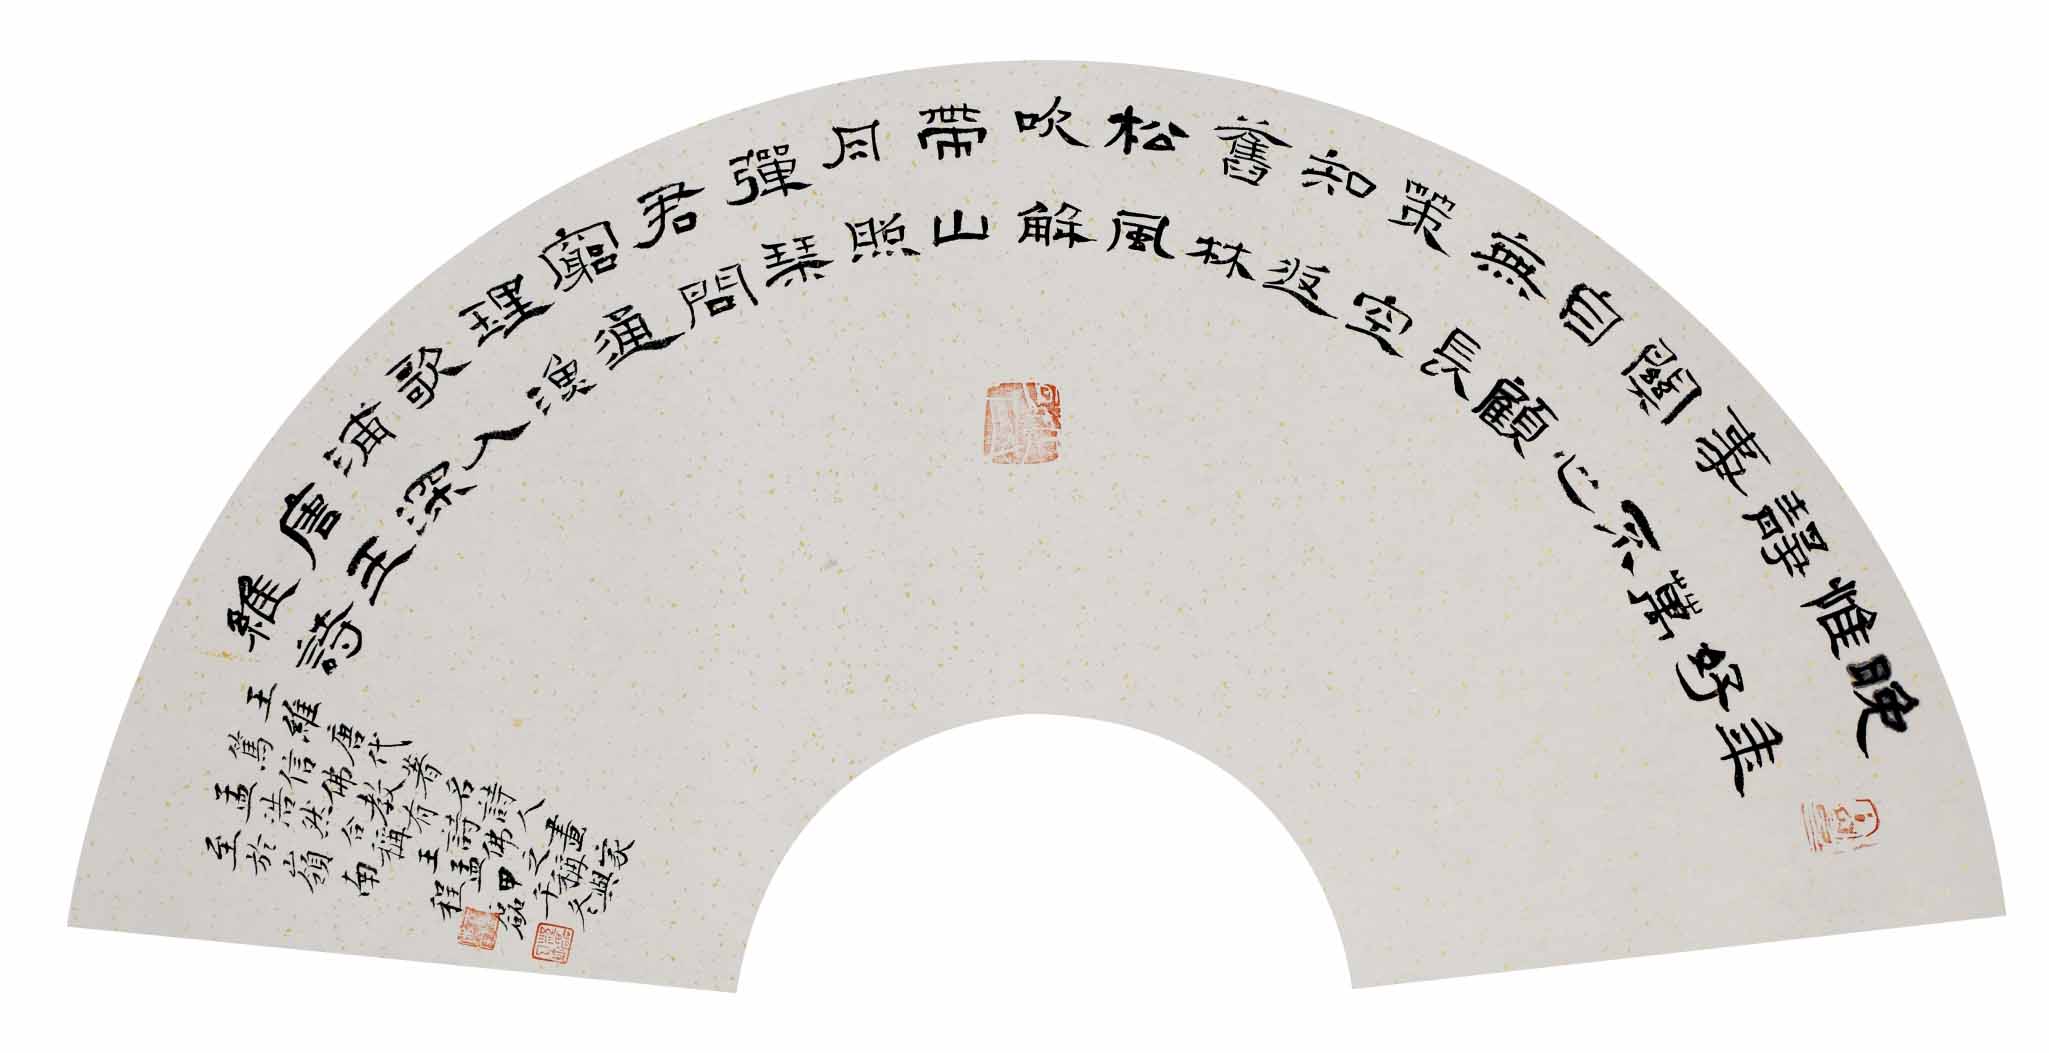 晚年
惟好
靜萬
事不
關心
自顧
無長
策空
知返
舊林
松風
吹解
帶山
月照
彈琴
君問
窮通
理漁
歌入
浦深
唐王
維詩
王維唐代著名詩人畫家
篤信佛教有詩佛之稱與
孟浩然合稱王孟甲午冬
至於嶺南 程磊